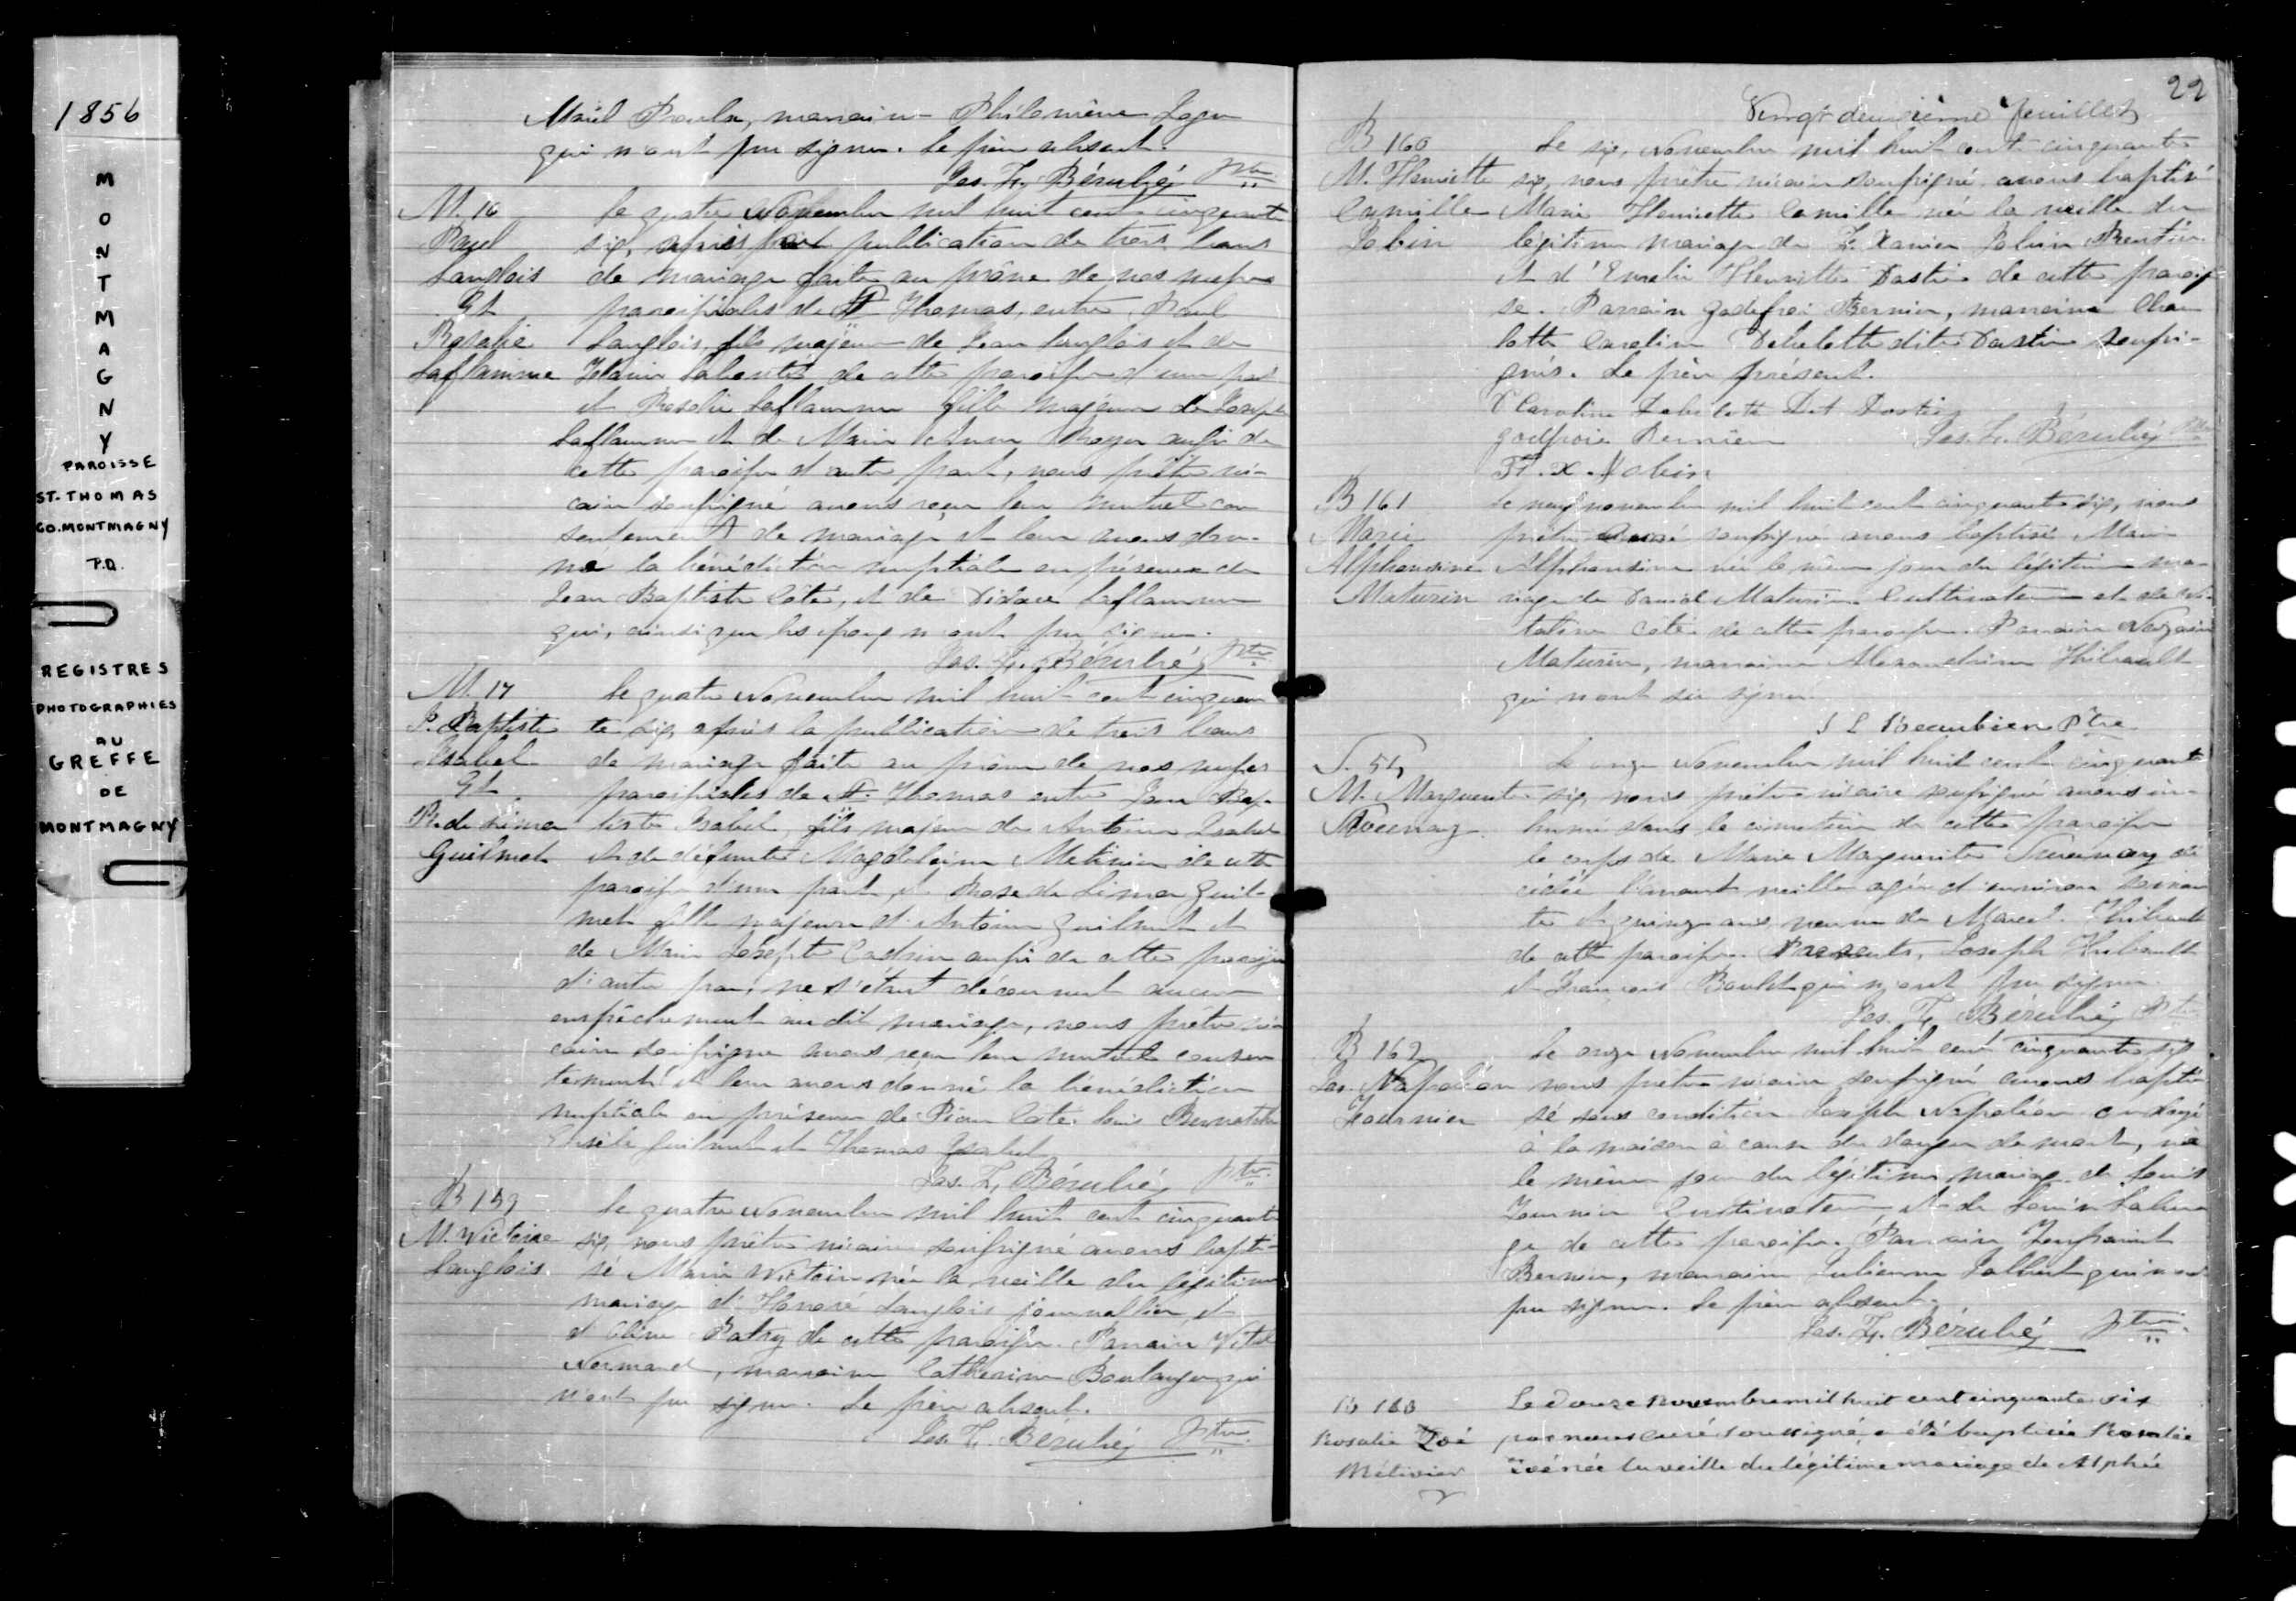 1856
MONTMAGNY
PAROISSE
ST-THOMAS
CO.MONTMAGNY
P.Q.
REGISTRES
PHOTOGRAPHIES
AU
GREFFE
DE
MONTMAGNY
marraine Philomène
qui n'ont pu signer. Le père absent.
Jos. Bérubé Ptre
M. 16
Paul
Langlois
Et
Rosalie
Laflamme
Le quatre Novembre mil huit cent cinquante
six, après publication de trois bans
de mariage faite au prône de nos messes
paroissiales de St Thomas, entre Paul
Langlois, fils majeur de Jean Langlois et de
de cette paroisse d'une part
et Rosalie Laflamme fille majeure de Joseph
Laflamme et de Marie aussi de
cette paroisse d'autre part, nous prêtre vi-
caire soussigné avons reçu leur mutuel con
sentement de mariage et leur avons don-
né la bénédiction nuptiale en présence de
Jean Baptiste Côté, et de Didace Laflamme
qui, ainsi que les époux n'ont pu signer.
Jos. Bérubé Ptre
M. 17
J. Baptiste
Isabel
Et
R. de Lima
Guilmet
Le quatre Novembre mil huit cent cinquan
te six, après la publication de trois bans
de mariage faite au prône de nos messes
paroissiales de St. Thomas entre Jean Bap-
tiste Isabel, fils majeur de Antoine Isabel
et de défunte Magdeleine Metivier de cette
paroisse d'une part, et Rose de Lima Guil-
met fille majeure d'Antoine Guilmet et
de Marie Josephte aussi de cette paroisse
d'autre part, ne s'étant découvert aucun
empêchement au dit mariage, nous prêtre vi-
caire soussigné avons reçu leur mutuel consen
tement et leur avons donné la bénédiction
nuptiale en présence de Côté,
Guilmet et Thomas Isabel
Jos. Bérubé Ptre
B 159
M. Victoire
Langlois
Le quatre Novembre mil huit cent cinquante
six, nous prêtre vicaire soussigné avons bapti-
sé Marie Victoire née la veille du légitime
mariage d'Honoré Langlois journallier, et
de cette paroisse. Parrain Vital
Normand, marraine Catherine Boulanger qui
n'ont pu signer. Le père absent.
Jos. Bérubé Ptre
22
Vingt deuxième feuillet
B 160
M. Henriette
Camille
Jobin
Le six, Novembre mil huit cent cinquante
six, nous prêtre vicaire soussigné avons baptisé
Marie Henriette Camille née la veille du
légitime mariage de F. Xavier Jobin
et d'Emelie Henriette Dostie de cette parois
se. Parrain Godefroi Bernier, marraine Char
lotte Caroline dite Dostie soussi-
gnés. Le père présent.
Caroline Dit Dostie
Godfroie Bernier
Jos. Bérubé Ptre
F. X. Jobin
B 161
Marie
Alphonsine
Maturin
Le neuf novembre mil huit cent cinquante six, nous
prêtre curé soussigné avons baptisé Marie
Alphonsine née le même jour du légitime ma-
riage de Daniel Maturin Cultivateur et de
Côté de cette paroisse. Parrain
Maturin, marraine Alexandrine Thibault
qui n'ont su signer.
J L Beaubien Ptre
M. Marguerite
Le onze Novembre mil huit cent cinquante
six, nous prêtre vicaire soussigné avons in-
humé dans le cimetière de cette paroisse
le corps de Marie Marguerite dé
cédée l'avant veille agée d'environ soixan
te et quinze ans veuve de Marcel Thibault
de cette paroisse. Présents, Joseph Thibault
et François Boulet qui n'ont pu signer.
Jos. Bérubé Ptre
B 162
Jos. Napoléon
Fournier
Le onze Novembre mil huit cent cinquante six
nous prêtre vicaire soussigné avons bapti
sé sous condition Joseph Napoléon ondoyé
à la maison à cause du danger de mort, né
le même jour du légitime mariage de Louis
Fournier Cultivateur et de
de cette paroisse. Parrain
Bernier, marraine Julienne Jalbert qui n'ont
pu signer. Le père absent.
Jos. Bérubé Ptre
B 163
Rosalie Zoé
Métivier
Le Douze Novembre mil huit cent cinquante six
par nous curé soussigné, a été baptisée Rosalie
Zoé née la veille du légitime mariage de Alphée